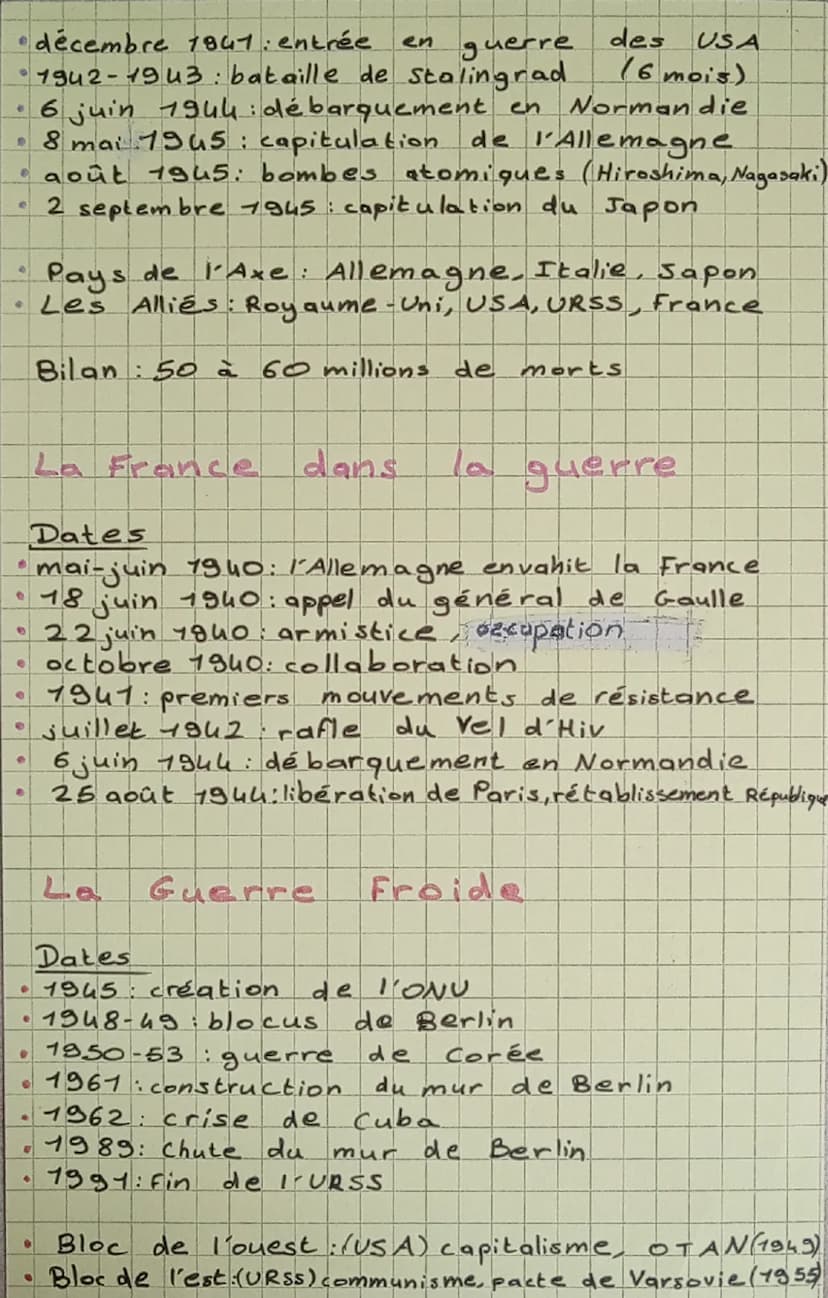 • décembre 1941 : entrée en guerre des USA
• 1942-1943 : bataille de Stalingrad (6 mois)
• 6 juin 1944 : débarquement en Normandie
• 8 mai 1945 : capitulation de l'Allemagne
• août 1945 : bombes atomiques (Hiroshima, Nagasaki)
• 2 septembre 1945 : capitulation du Japon
• Pays de l'Axe : Allemagne, Italie, Japon
• Les Alliés : Royaume-Uni, USA, URSS, France
Bilan : 50 à 60 millions de morts
La France dans la guerre
Dates
• mai-juin 1940 : l'Allemagne envahit la France
• 18 juin 1940 : appel du général de Gaulle
• 22 juin 1940 : armistice, occupation
• octobre 1940 : collaboration
• 1941 : premiers mouvements de résistance
• juillet 1942 : rafle du Vel d'Hiv
• 6 juin 1944 : débarquement en Normandie
• 25 août 1944 : libération de Paris, rétablissement République
La Guerre Froide
Dates
• 1945 : création de l'ONU
• 1948-49 : blocus de Berlin
• 1950-53 : guerre de Corée
• 1961 : construction du mur de Berlin
• 1962 : crise de Cuba
• 1989 : Chute du mur de Berlin
• 1991 : Fin de l'URSS
• Bloc de l'ouest : (USA) capitalisme, OTAN (1949)
• Bloc de l'est : (URSS) communisme, pacte de Varsovie (1955)